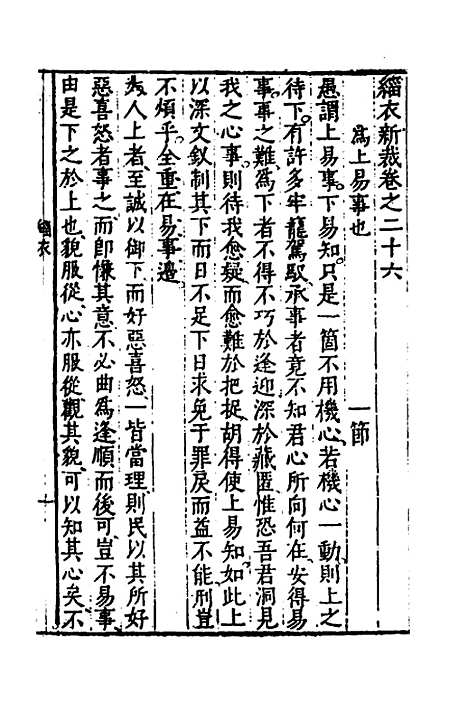 緇衣新裁卷之二十六
為上易事也　一節
愚謂上易事下易知只是一箇不用機心若機心一動則上之
待下有許多牢籠駕馭承事者竟不知君心所向何在安得易
事事之難為下者不得不巧於逢迎深於藏匿惟恐吾君洞見
我之心事則待我愈疑而愈難於把捉胡得使上易知如此上
以深文釵制其下而日不足下日求免于罪戾而益不能刑豈
不煩乎全重在易事邊
為人上者至誠以御下而好惡喜怒一皆當理則民以其所好
惡喜怒者事之而即愜其意不必曲為逢順而後可豈不易事
由是下之於上也貌服從心亦服從觀其貌可以知其心矣不
緇衣